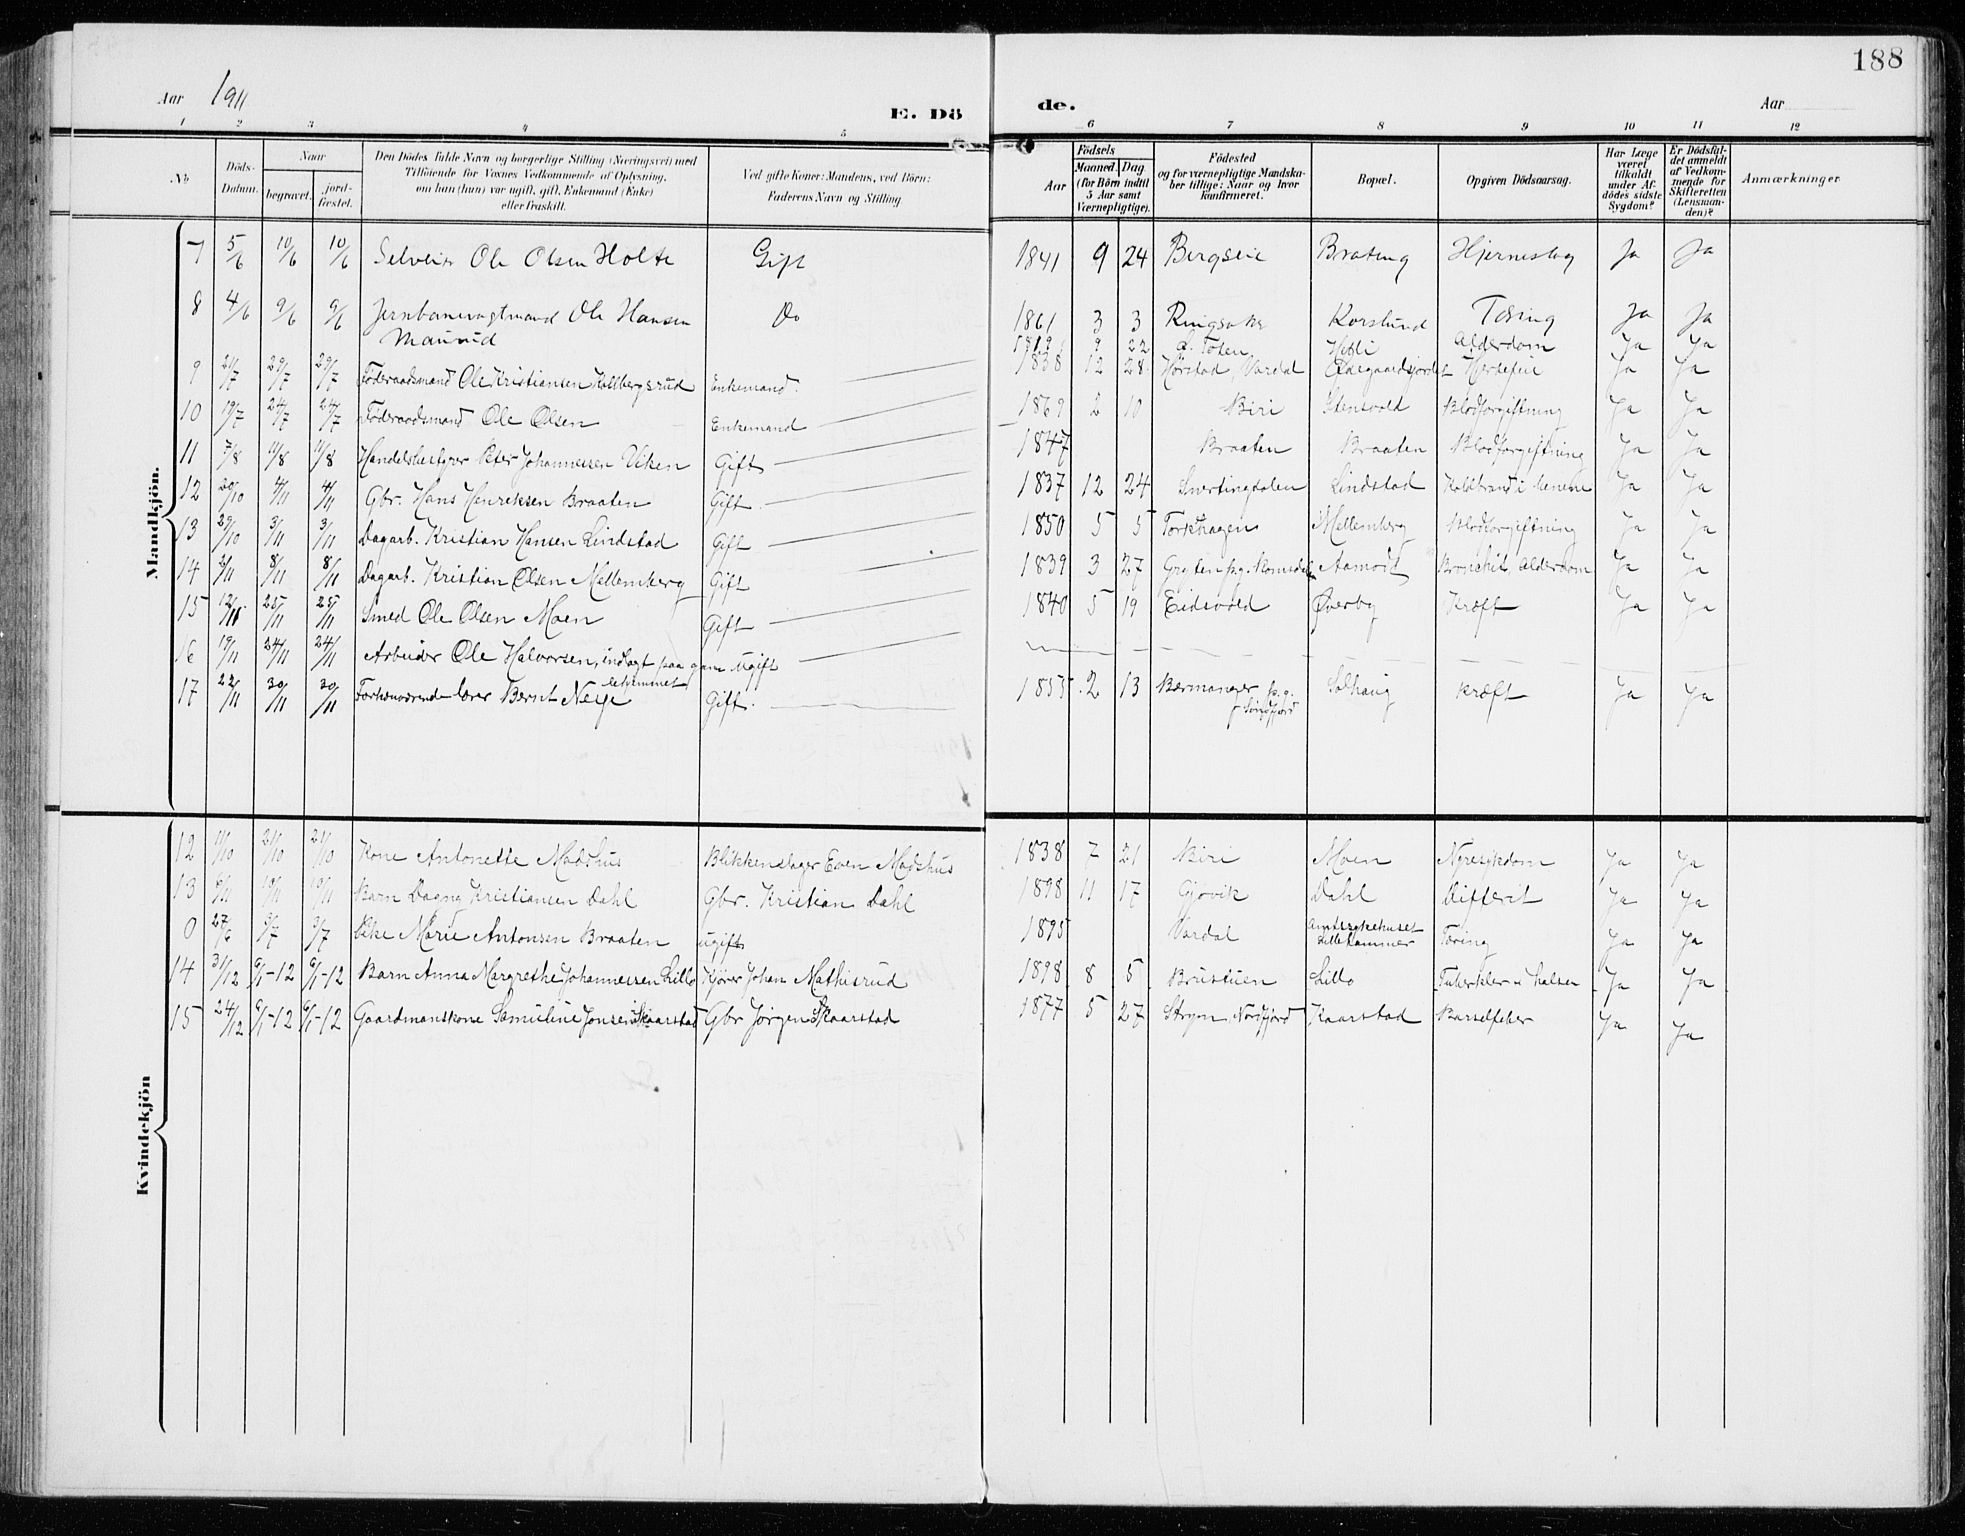 188
Aar 1911
E. Dö
de.
Aar
1 2 3 4 5 6 7 8 9 10 11 12
No.
Döds-
Datum.
Naar
begravet.
jord-
fæstet.
Den Dödes fulde Navn og borgerlige Stilling (Næringsvei) med
Tilföiende for Voxnes Vedkommende af Oplysning,
om han (hun) var ugift, gift, Enkemand (Enke)
eller fraskilt.
Ved gifte Koner: Mandens, ved Börn:
Faderens Navn og Stilling
Födsels
Aar
Maaned. Dag
(for Börn indtil
5 Aar samt
Værnepligtige).
Födested
og for værnepligtige Mandska-
ber tillige: Naar og hvor
konfirmeret.
Bopæl.
Opgiven Dödsaarsag.
Har Læge
været
tilkaldt
under Af-
dödes sidste
Sygdom?
Er Dödsfal-
det anmeldt
af Vedkom-
mende for
Skifteretten
(Lensman-
den)?
Anmærkninger
Mandkjön.
7 5/6 10/6 10/6 Selveier Ole Olsen Holte Gift 1841 9 24 Bergseie Brateng Hjerneslag Ja Ja
8 4/6 9/6 9/6 Jernbanevagtmand Ole Hansen Do 1861 3 3 Ringsaker Korslund Tæring Ja Ja
Maurud
1819 9 22 Ø. Toten Hetli Alderdom Ja Ja
9 21/7 29/7 29/7 Föderaadsmand Ole Kristiansen Kallbergsrud Enkemand 1838 12 28 Hørstad Vardal Ødegaardsjordet Hjertefeil Ja Ja
10 19/7 24/7 24/7 Föderaadsmand Ole Olsen Enkemand 1869 2 10 Biri Stensvold Blodforgiftning Ja Ja
11 7/8 11/8 11/8 Handelsbestyrer Peter Johannessen Viken Gift 1847 Braaten Braaten Blodforgiftning Ja Ja
12 29/10 4/11 4/11 Gbr. Hans Henriksen Braaten Gift 1837 12 24 Snertingdalen Lindstad Koldbrand i benene Ja Ja
13 29/10 3/11 3/11 Dagarb. Kristian Hansen Lindstad Gift 1850 5 5 Torkhagen Mellemberg Blodforgiftning Ja Ja
14 2/11 8/11 8/11 Dagarb. Kristian Olsen Mellemberg Gift 1839 3 27 Gryten pg. Romsdalen Aamodt Bronchit, Alderdom Ja Ja
15 12/11 25/11 25/11 Smed Ole Olsen Moen Gift 1840 5 19 Eidsvold Øverby Kræft Ja Ja
16 19/11 24/11 24/11 Arbeider Ole Halvorsen, indlagt paa gam Ugift
lehjemmet
17 22/11 30/11 30/11 Forhenværende lærer Bernt Neye Gift 1855 2 13 Bærmanger p.g. Solhaug Kræft Ja Ja
Kvindekjön
12 11/10 21/10 21/10 Kone Antonette Madshus Blikkenslager Even Madshus 1838 7 21 Biri Moen Nyresykdom Ja Ja
13 6/11 19/11 19/11 Barn Dagny Kristiansen Dahl Gbr. Kristian Dahl 1898 11 17 Gjøvik Dahl Difterit Ja Ja
0 27/6 3/7 3/7 Pike Marie Antonsen Braaten ugift 1895 Vardal Amtssykehuset Tæring Ja Ja
Lillehammer
14 31/12 6/1-12 6/1-12 Barn Anna Margrethe Johannessen Lillo Kjører Johan Mathisrud 1898 8 5 Brustuen Lillo Tuberkler i halsen Ja Ja
15 24/12 6/1-12 6/1-12 Gaardmanskone Samueline Jonsen Skaarstad Gbr Jørgen Skaarstad 1877 5 27 Stryn, Nordfjord Kaarstad Barselfeber Ja Ja